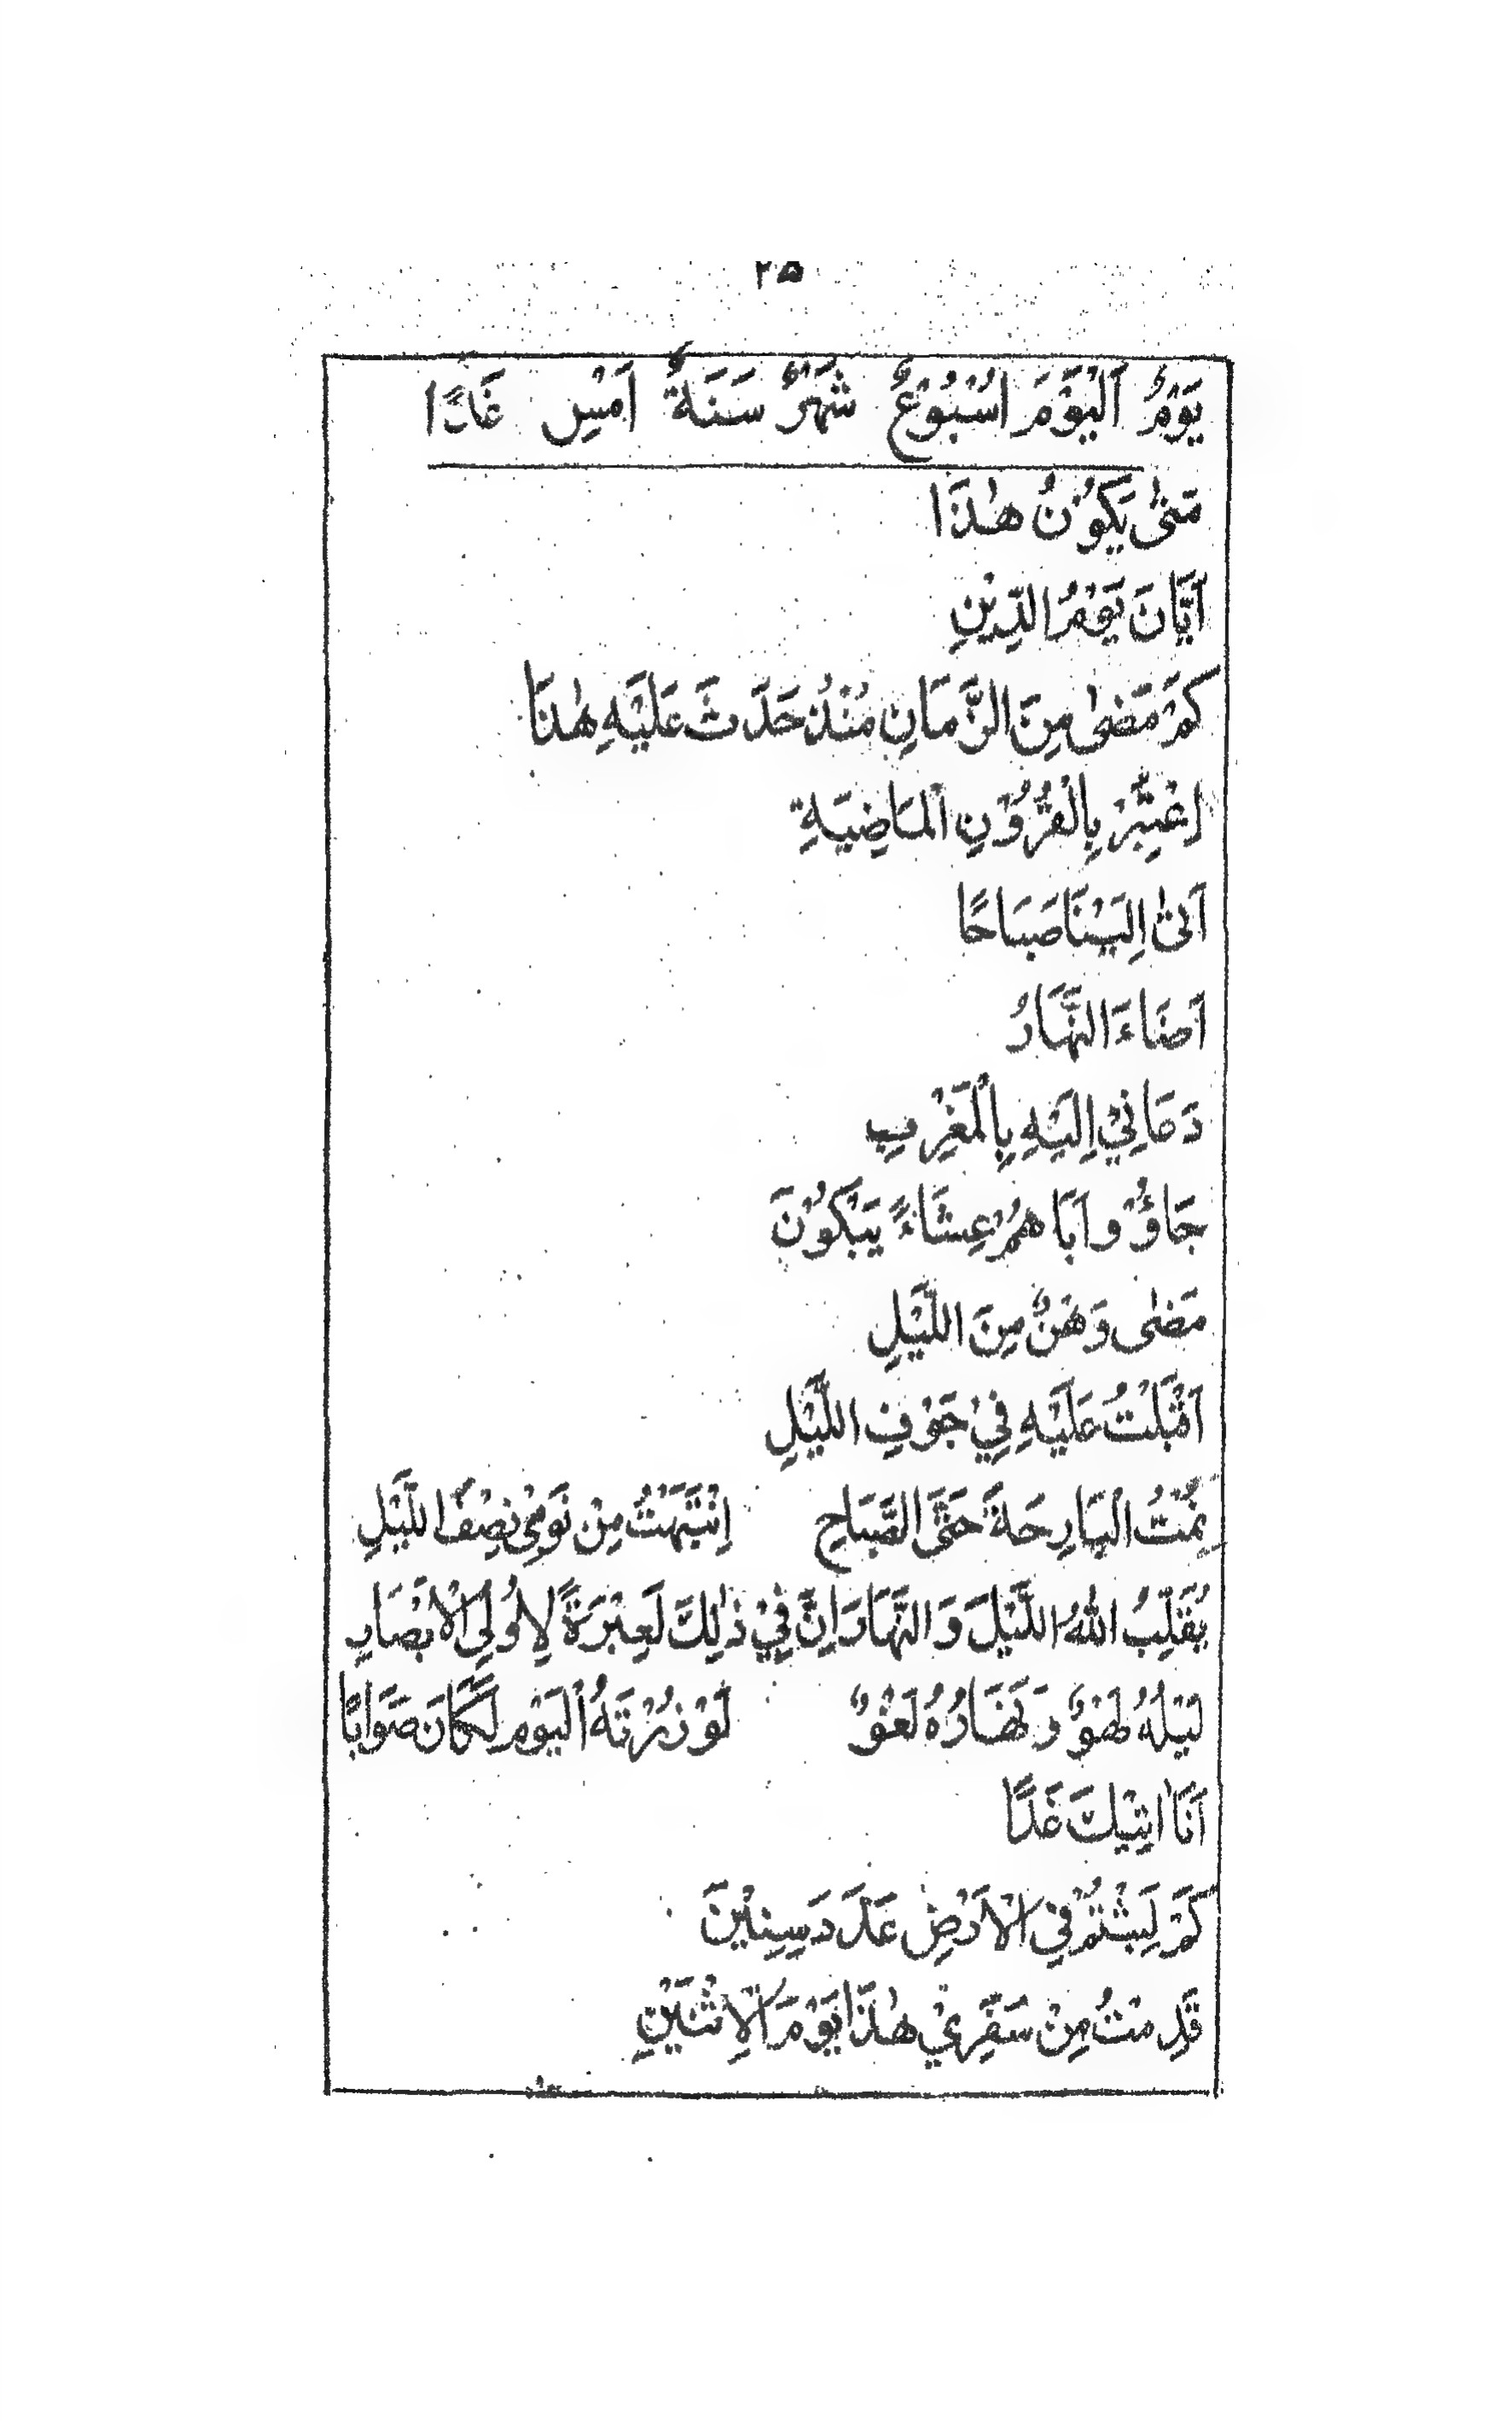 ٢٥
يَوْمٌ اَلْيَوْمَ اُسْبُوْعٌ شَهْرٌ سَنَةٌ اَمْسِ غَدًا
مَتٰى يَكُوْنُ هٰذَا
اَيَّانَ يَوْمُ الدِّيْنِ
كَمْ مَضٰى مِنَ الزَّمَانِ مُنْذُ حَدَثَ عَلَيْهِ هٰذَا
اِعْتَبِرْ بِالْقُرُوْنِ الْمَاضِيَةِ
اَتٰى اِلَيْنَا صَبَاحًا
اَضَاءَ النَّهَارُ
دَعَانِيْ اِلَيْهِ بِالْمَغْرِبِ
جَاؤُوْ اَبَاهُمْ عِشَاءً يَبْكُوْنَ
مَضٰى وَهْنٌ مِنَ اللَّيْلِ
اَقْبَلْتُ عَلَيْهِ فِيْ جَوْفِ اللَّيْلِ
نِمْتُ الْبَارِحَةَ حَتَّى الصَّبَاحِ اِنْتَبَهْتُ مِنْ نَوْمِيْ نِصْفَ اللَّيْلِ
يُقَلِّبُ اللهُ اللَّيْلَ وَالنَّهَارَ اِنَّ فِيْ ذٰلِكَ لَعِبْرَةً لِاُولِى الْاَبْصَارِ
لَيْلُهُ لَهْوٌ وَنَهَارُهُ لَغْوٌ لَوْ زُرْتَهُ الْيَوْمَ لَكَانَ صَوَابًا
اَنَا اٰتِيْكَ غَدًا
كَمْ لَبِثْتُمْ فِي الْاَرْضِ عَدَدَ سِنِيْنَ
قَدِمْتُ مِنْ سَفَرِيْ هٰذَا يَوْمَ الْاِثْنَيْنِ